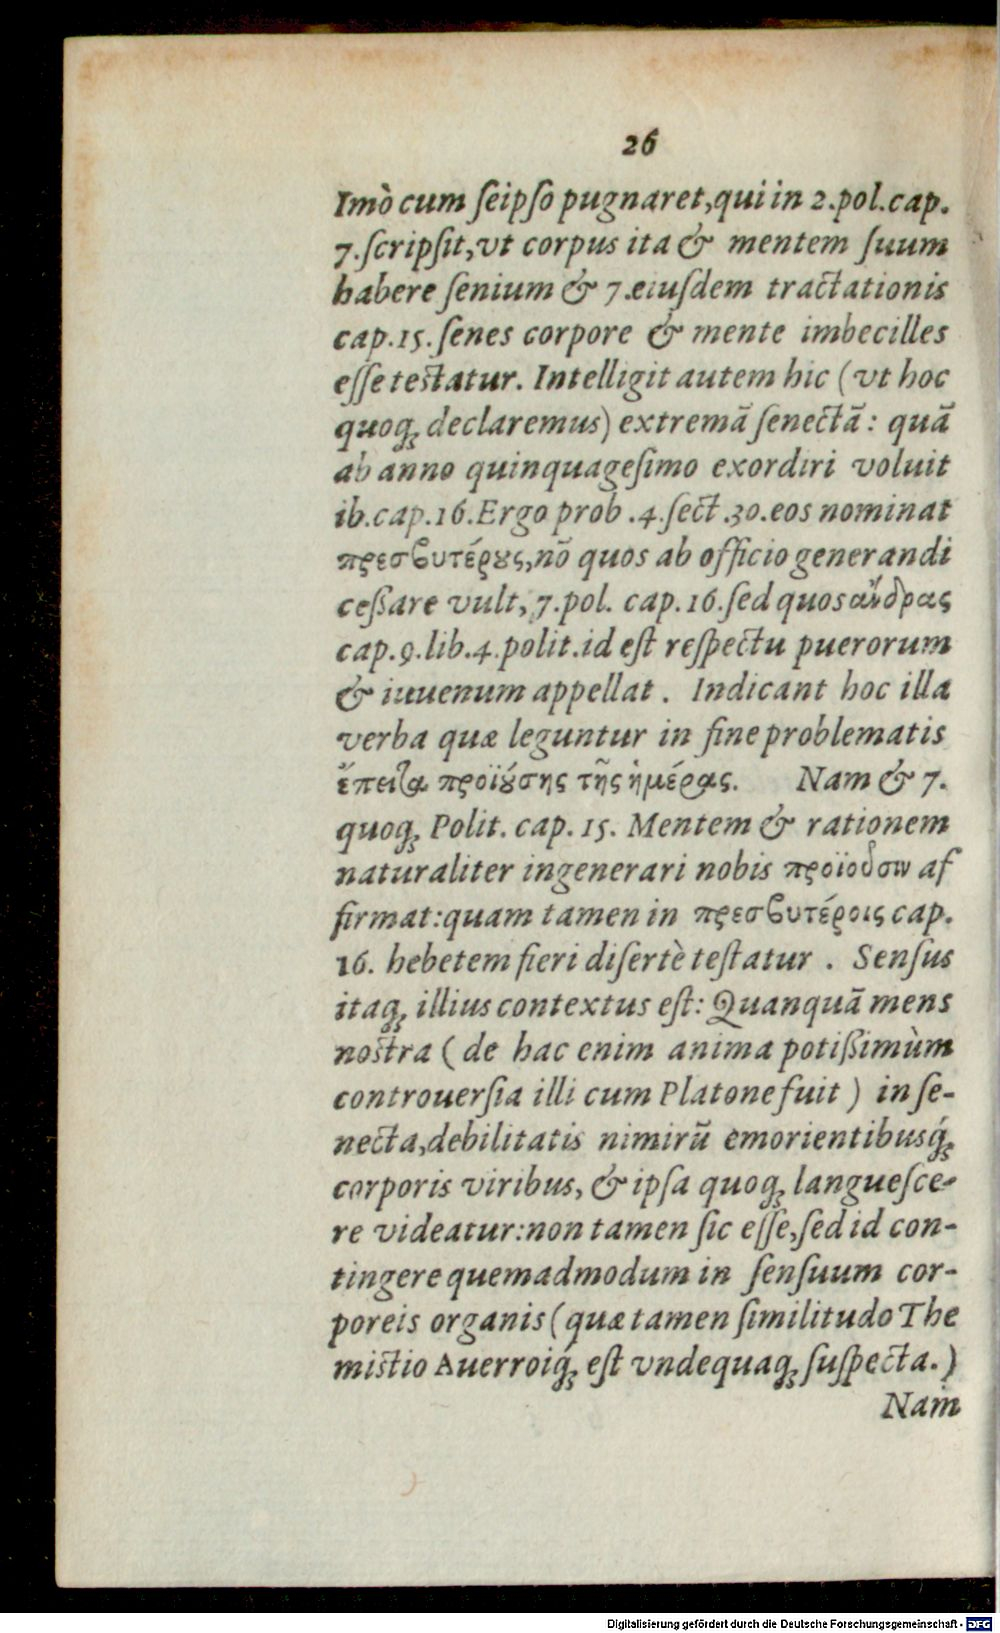 26
Imò cum ſeipſo pugnaret,qui in 2.pol.cap.
7.ſcripſit,vt corpus ita & mentem ſuum
habere ſenium & 7.eiuſdem tractationis
cap.15.ſenes corpore & mente imbecilles
eſſe teſtatur. Intelligit autem hic (vt hoc
quoqꝫ declaremus) extremā ſenectā: quā
ab anno quinquageſimo exordiri voluit
ib.cap.16.Ergo prob .4.ſect.30.eos nominat
πρεσβυτέρȣς,nō quos ab officio generandi
ceßare vult, 7.pol. cap.16.ſed quos ἄνδρας
cap.9.lib.4.polit.id eſt reſpectu puerorum
& iuuenum appellat . Indicant hoc illa
verba quæ leguntur in fine problematis
ἔπειτα προϊȣ́σης τῆς ἡμέρας. Nam & 7.
quoqꝫ Polit. cap. 15. Mentem & rationem
naturaliter ingenerari nobis προϊοῦσιν af
firmat:quam tamen in πρεσβυτέροις cap.
16. hebetem fieri diſertè teſtatur . Senſus
itaqꝫ illius contextus eſt: Quanquā mens
noſtra (de hac enim anima potißimùm
controuerſia illi cum Platone fuit ) in ſe-
necta,debilitatis nimirū emorientibusq́ꝫ
corporis viribus, & ipſa quoqꝫ langueſce-
re videatur:non tamen ſic eſſe,ſed id con-
tingere quemadmodum in ſenſuum cor-
poreis organis (quæ tamen ſimilitudo The
miſtio Auerroiq́ꝫ eſt vndequaqꝫ ſuſpecta.)
Nam
Digitalisierung gefördert durch die Deutsche Forschungsgemeinschaft - DFG